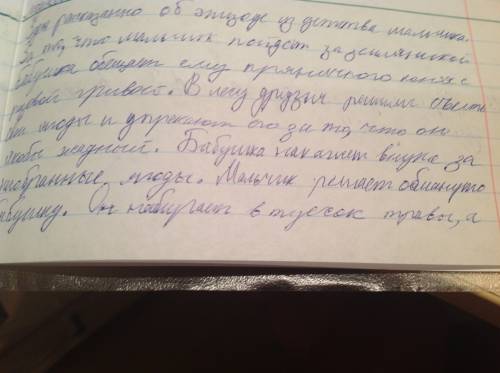 рассказано об эпизоде из детства мальчика.
За то, что мальчик пойдёт за земляникой
бабушка обещает ему пряничного коня с
гривой. В лесу друзья решили съесть
ягоды и упрекают его за то что он
якобы жадный. Бабушка накажет внука за
ягоды. Мальчик решает обмануть
бабушку. Он набирает в туесок травы, а